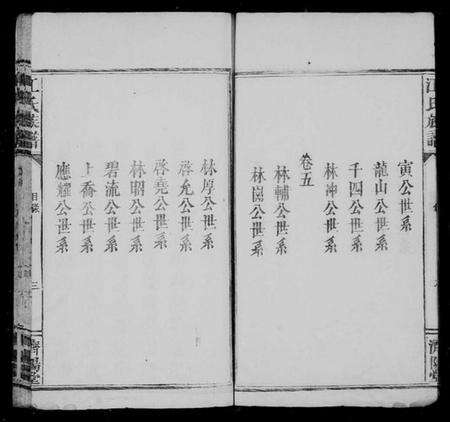 江氏族譜
寅公世系
龍山公世系
千四公世系
林沖公世系
卷五
林輔公世系
林崗公世系
林厚公世系
啓允公世系
啓堯公世系
林昭公世系
碧流公世系
上喬公世系
應耀公世系
江氏族譜
目錄
三
濟陽堂
濟陽堂